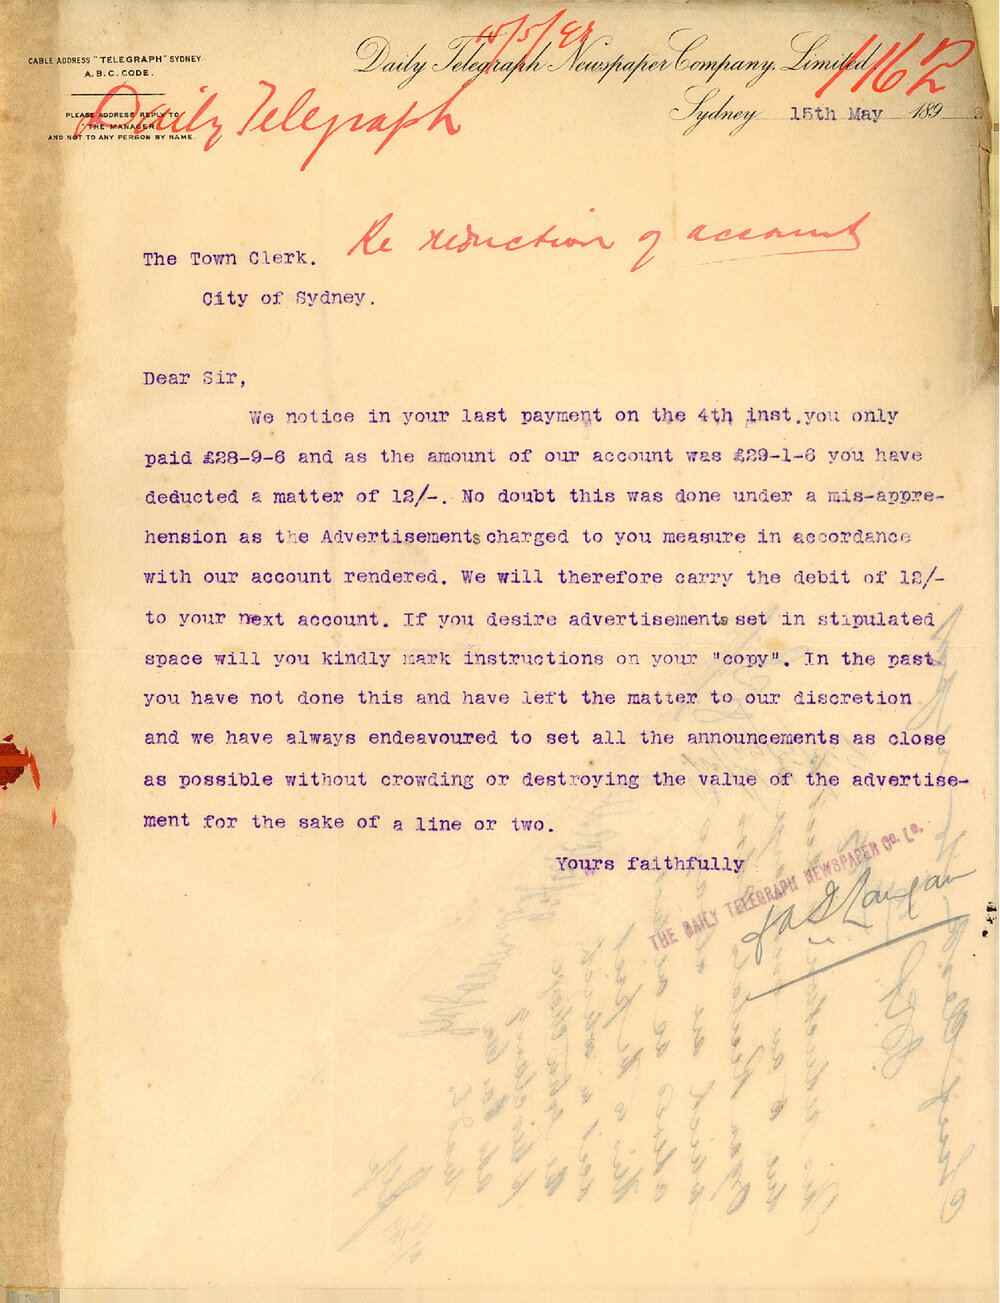 CABLE ADDRESS "TELEGRAPH" SYDNEY
A.B.C. CODE.
PLEASE ADDRESS REPLY TO
THE MANAGER
AND NOT TO ANY PERSON BY NAME.
15/5/99
Daily Telegraph Newspaper Company, Limited
1162
Daily Telegraph
Sydney 15th May 1899
Re reduction of account
The Town Clerk.
City of Sydney.
Dear Sir,
We notice in your last payment on the 4th inst.you only
paid £28-9-6 and as the amount of our account was £29-1-6 you have
deducted a matter of 12/-. No doubt this was done under a mis-appre-
hension as the Advertisements charged to you measure in accordance
with our account rendered. We will therefore carry the debit of 12/-
to your next account. If you desire advertisements set in stipulated
space will you kindly mark instructions on your "copy". In the past
you have not done this and have left the matter to our discretion
and we have always endeavoured to set all the announcements as close
as possible without crowding or destroying the value of the advertise-
ment for the sake of a line or two.
Yours faithfully
THE DAILY TELEGRAPH NEWSPAPER Co. Ld.